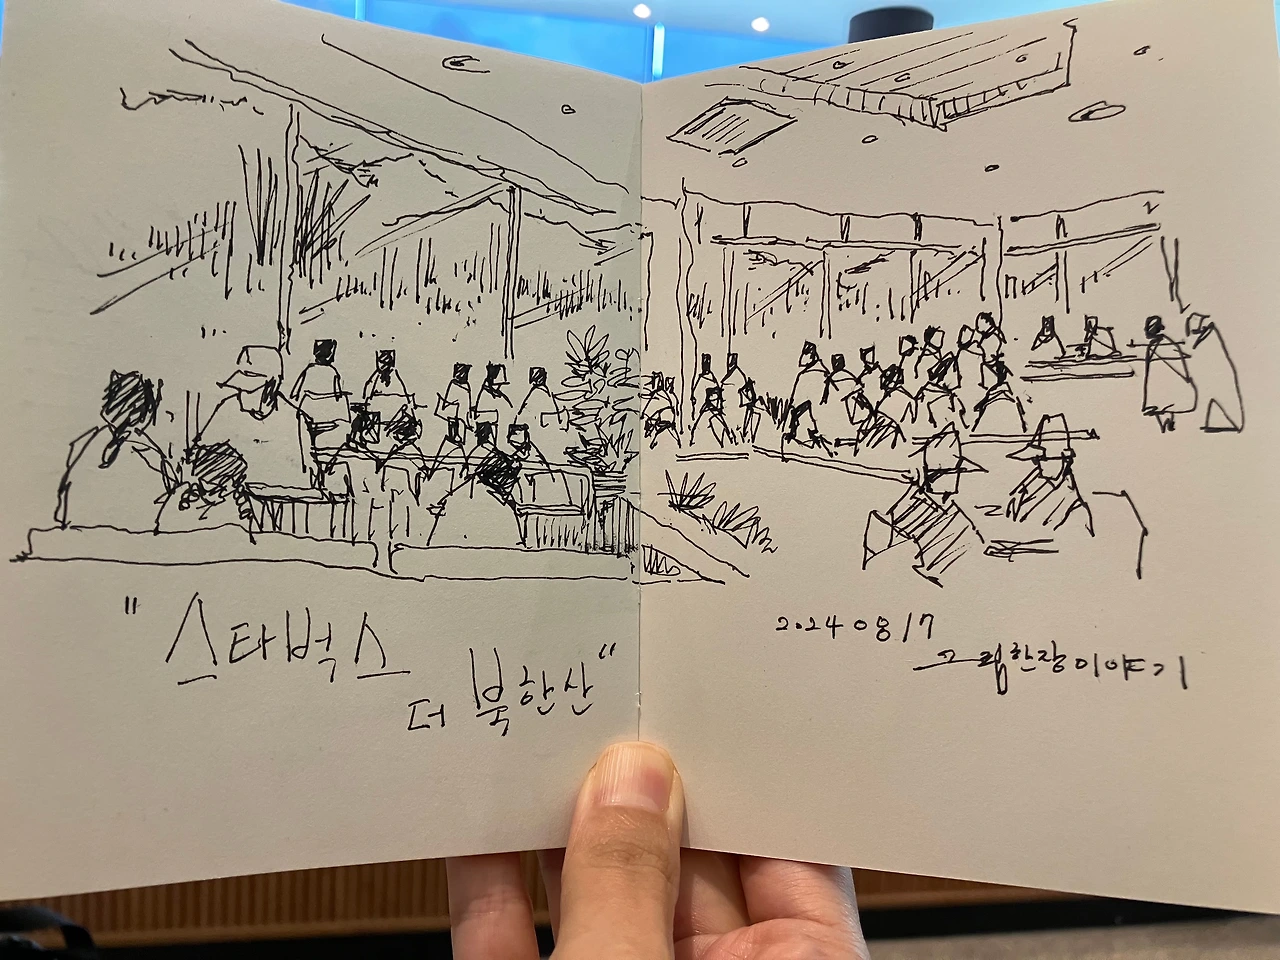 "스타벅스
더 북한산"
2024 08 17
그림한장이야기